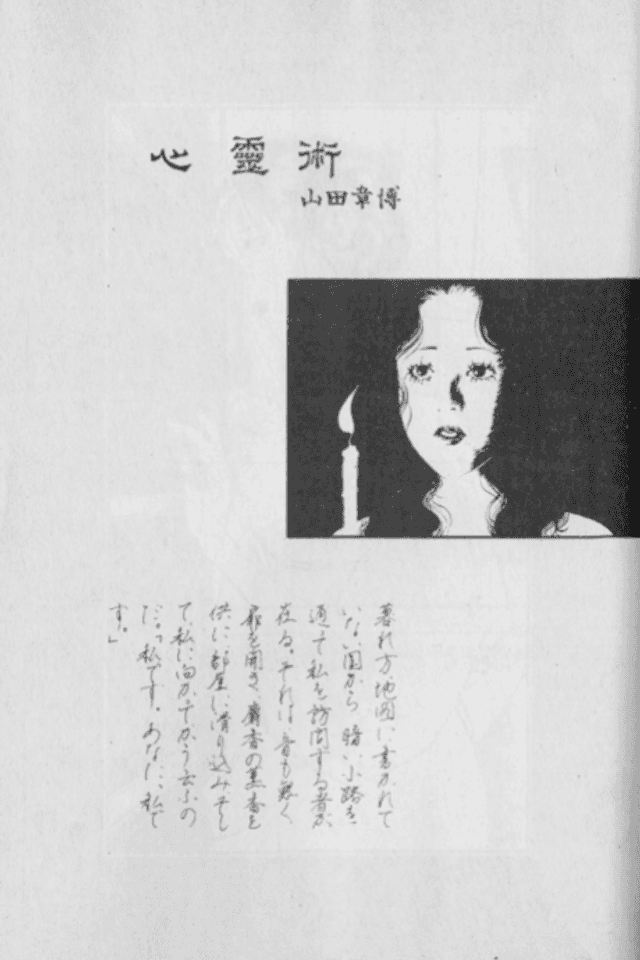 心靈術
山田章博
暮れ方、地図に書かれて
いない国から暗い小路を
通って私を訪問する者が
在る。それは音も無く
扉を開き、麝香の薫香と
供に部屋に滑り込みそし
て、私に向かってかう云ふの
だ。「私です。あなた、私で
す。」